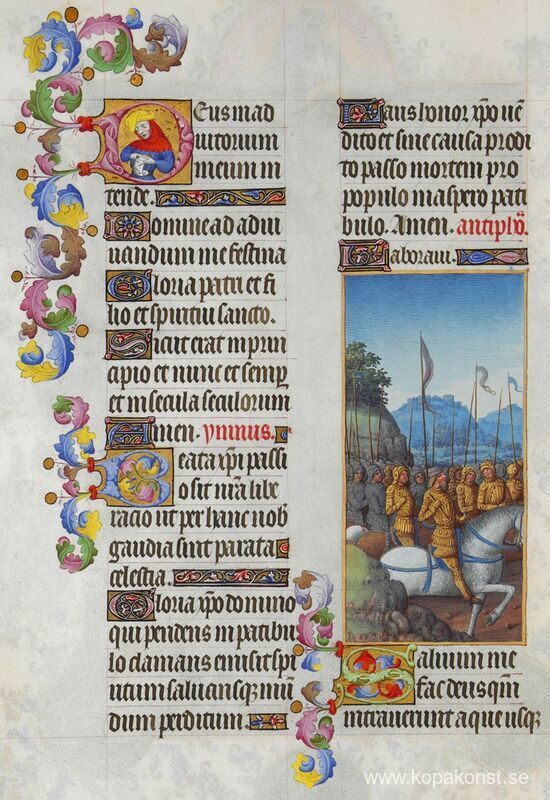 Deus in ad
iutorium
meum in
tende.
Domine ad adiu
uandum me festina
Gloria patri et fi
lio et spiritui sancto.
Sicut erat in prin
cipio et nunc et semp
et in secula seculorum
Amen. ymnus.
Beata xpi passi
o sit nra libe
racio ut per hanc nob
gaudia sint parata
celestia.
Gloria xpo domino
qui pendens in patibu
lo clamans emisit spi
ritum saluans q3 mun
dum perditum.
Laus honor xpo uen
dito et sine causa prodi
to passo mortem pro
populo in aspero pati
bulo. Amen. antipho.
Laboraui.
Saluum me
fac deus qm
intrauerunt aque usq3
www.kopakonst.se